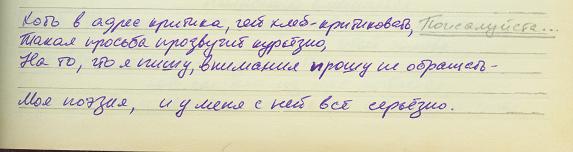 Хоть в адрес критика, чей хлеб-критиковать, Пожалуйста...
Такая просьба прозвучит курьёзно,
На то, что я пишу, внимания прошу не обращать-
Моя поэзия, и у меня с ней всё серьёзно.